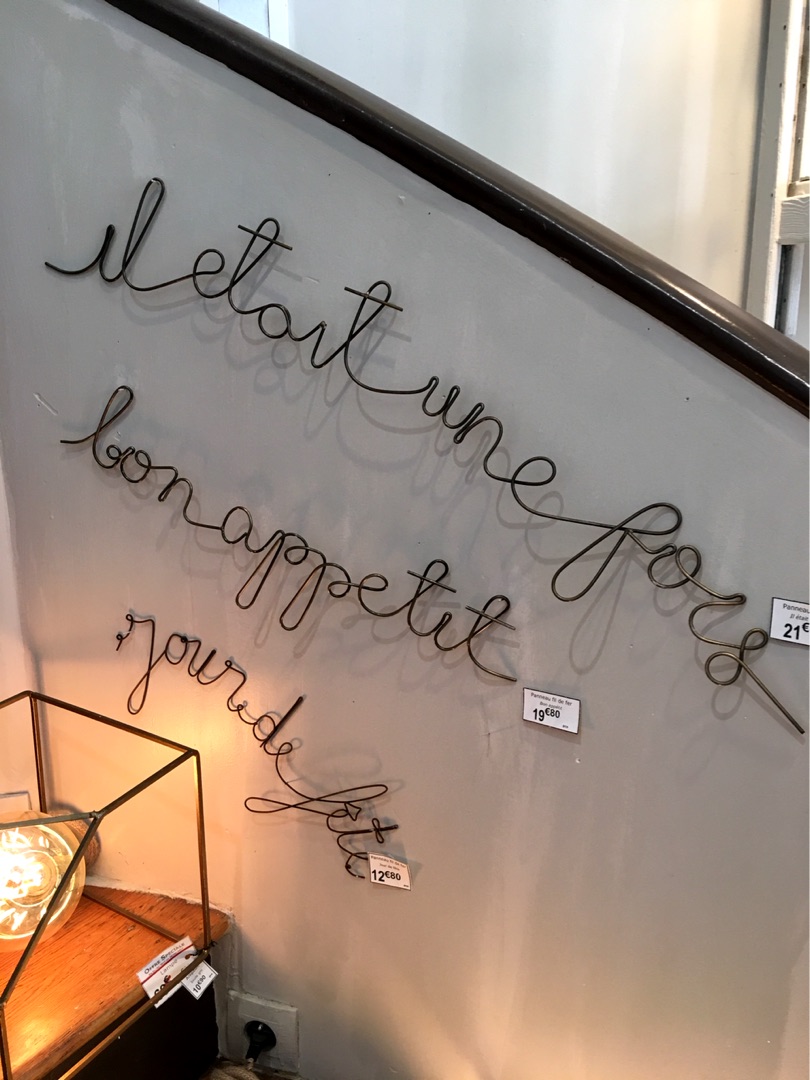 il etait une fois
Panneau
Il était
21€
bon appetit
Panneau fil de fer
Bon appétit
19€80
jour de fête
Panneau fil de fer
12€80
10€90